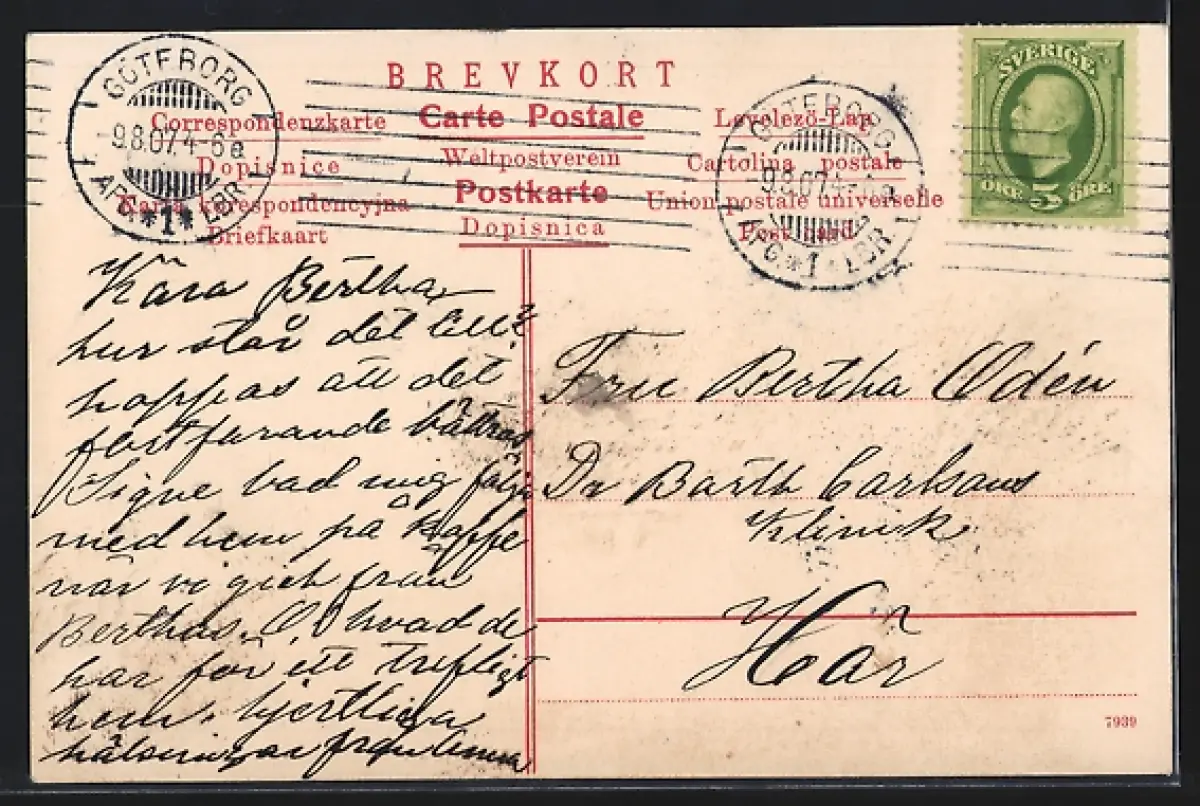 BREVKORT
Correspondenzkarte Carte Postale Levelező-Lap
Dopisnice Weltpostverein Cartolina postale
Karta korespondencyjna Postkarte Union postale universelle
Briefkaart Dopisnica Post card
GÖTEBORG
9.8.07.4-6e
AFG. *1* LBR.
GÖTEBORG
9.8.07.4-6e
AFG. *1* LBR.
SVERIGE
ÖRE 5 ÖRE
Kära Bertha
hur står det till?
hoppas att det
fortfarande bättras
Signe bad mig följa
med hem på kaffe
när vi gick från
Berthas. O, hvad de
har för ett trefligt
hem. hjertliga
hälsningar från Emma
Fru Bertha Odén
Dr Barth Carlsons
Klinik
Här
7939